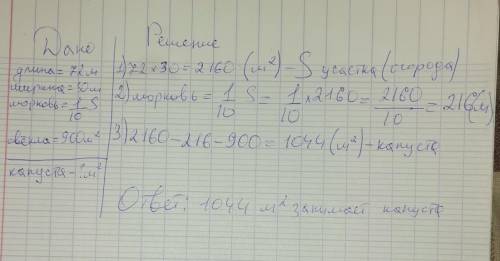 Дано
Решение
длина = 72м
ширина = 30м
морковь = 1/10 S
свекла = 900м²
капуста - ? м²
1) 72×30 = 2160 (м²) - S участка (огорода)
2) морковь = 1/10 S = 1/10 × 2160 = 2160/10 = 216 (м²)
3) 2160 - 216 - 900 = 1044 (м²) - капуста
Ответ: 1044 м² занимает капуста